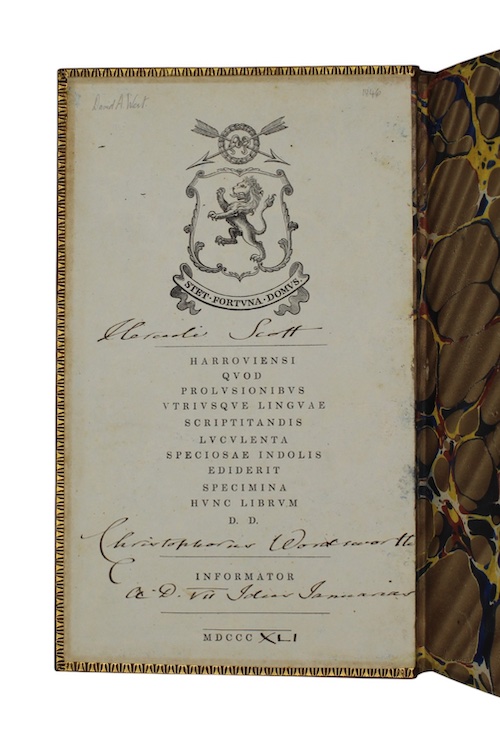 1846
STET · FORTVNA · DOMVS.
Scott
HARROVIENSI
QVOD
PROLVSIONIBVS
VTRIVSQVE LINGVAE
SCRIPTITANDIS
LVCVLENTA
SPECIOSAE INDOLIS
EDIDERIT
SPECIMINA
HVNC LIBRVM
D. D.
Christophorus Wordsworth
INFORMATOR
A. D. VII Idus Januarias
MDCCC XLI